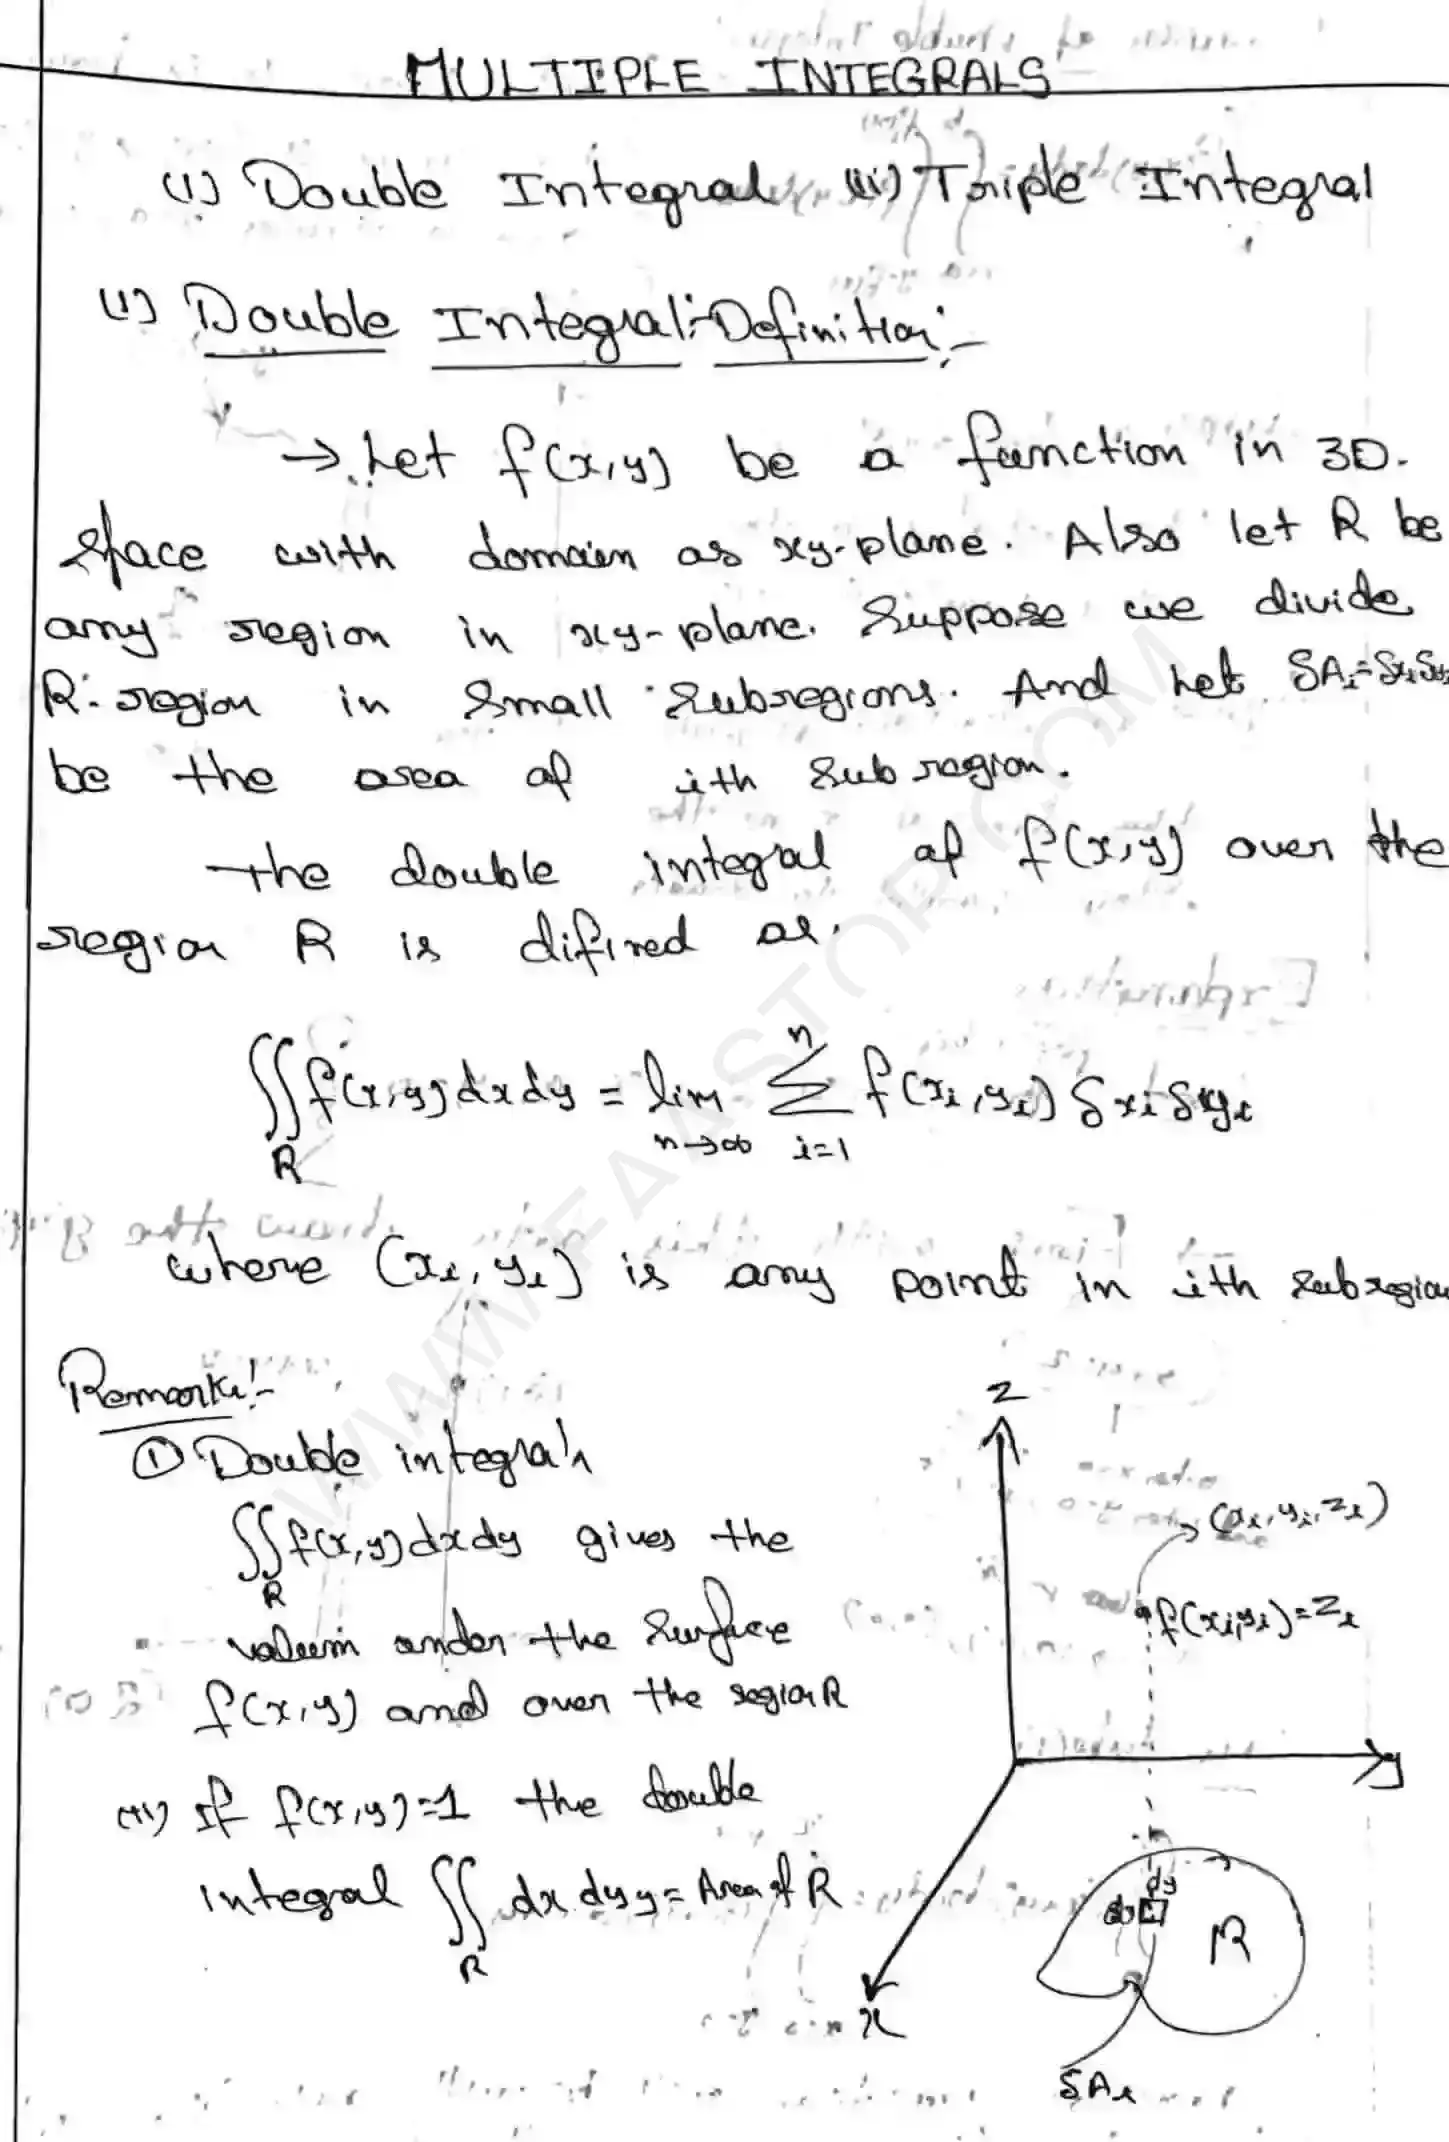 MULTIPLE INTEGRALS
(i) Double Integral (ii) Triple Integral
(i) Double Integral:-Definition:-
→ Let f(x,y) be a function in 3D.
space with domain as xy-plane. Also let R be
any region in xy-plane. Suppose we divide
R: region in small subregions. And Let δAi=δxiδyi
be the area of ith sub region.
the double integral of f(x,y) over the
region R is difined as.
∬R f(x,y)dxdy = lim n→∞ n∑i=1 f(xi,yi) δxi δyi
where (xi, yi) is any point in ith subregion
Remark:-
① Double integral
∬R f(x,y)dxdy gives the
volum under the surface
f(x,y) and over the region R
(ii) If f(x,y)=1 the double
integral ∬R dx dy y = Area of R
z
(xi, yi, zi)
f(xi,yi)=zi
y
dy
dx
R
x
δAi
WWW.FAASTOP.COM